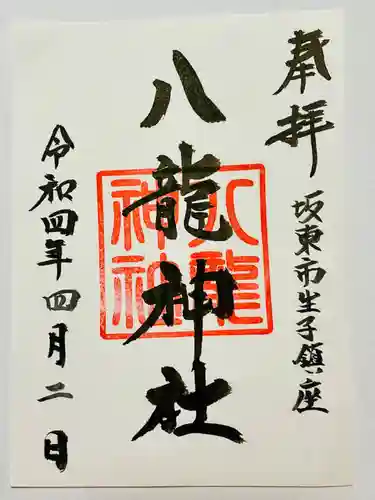 奉拝
坂東市生子鎮座
八龍神社
八龍
神社
令和四年四月二日